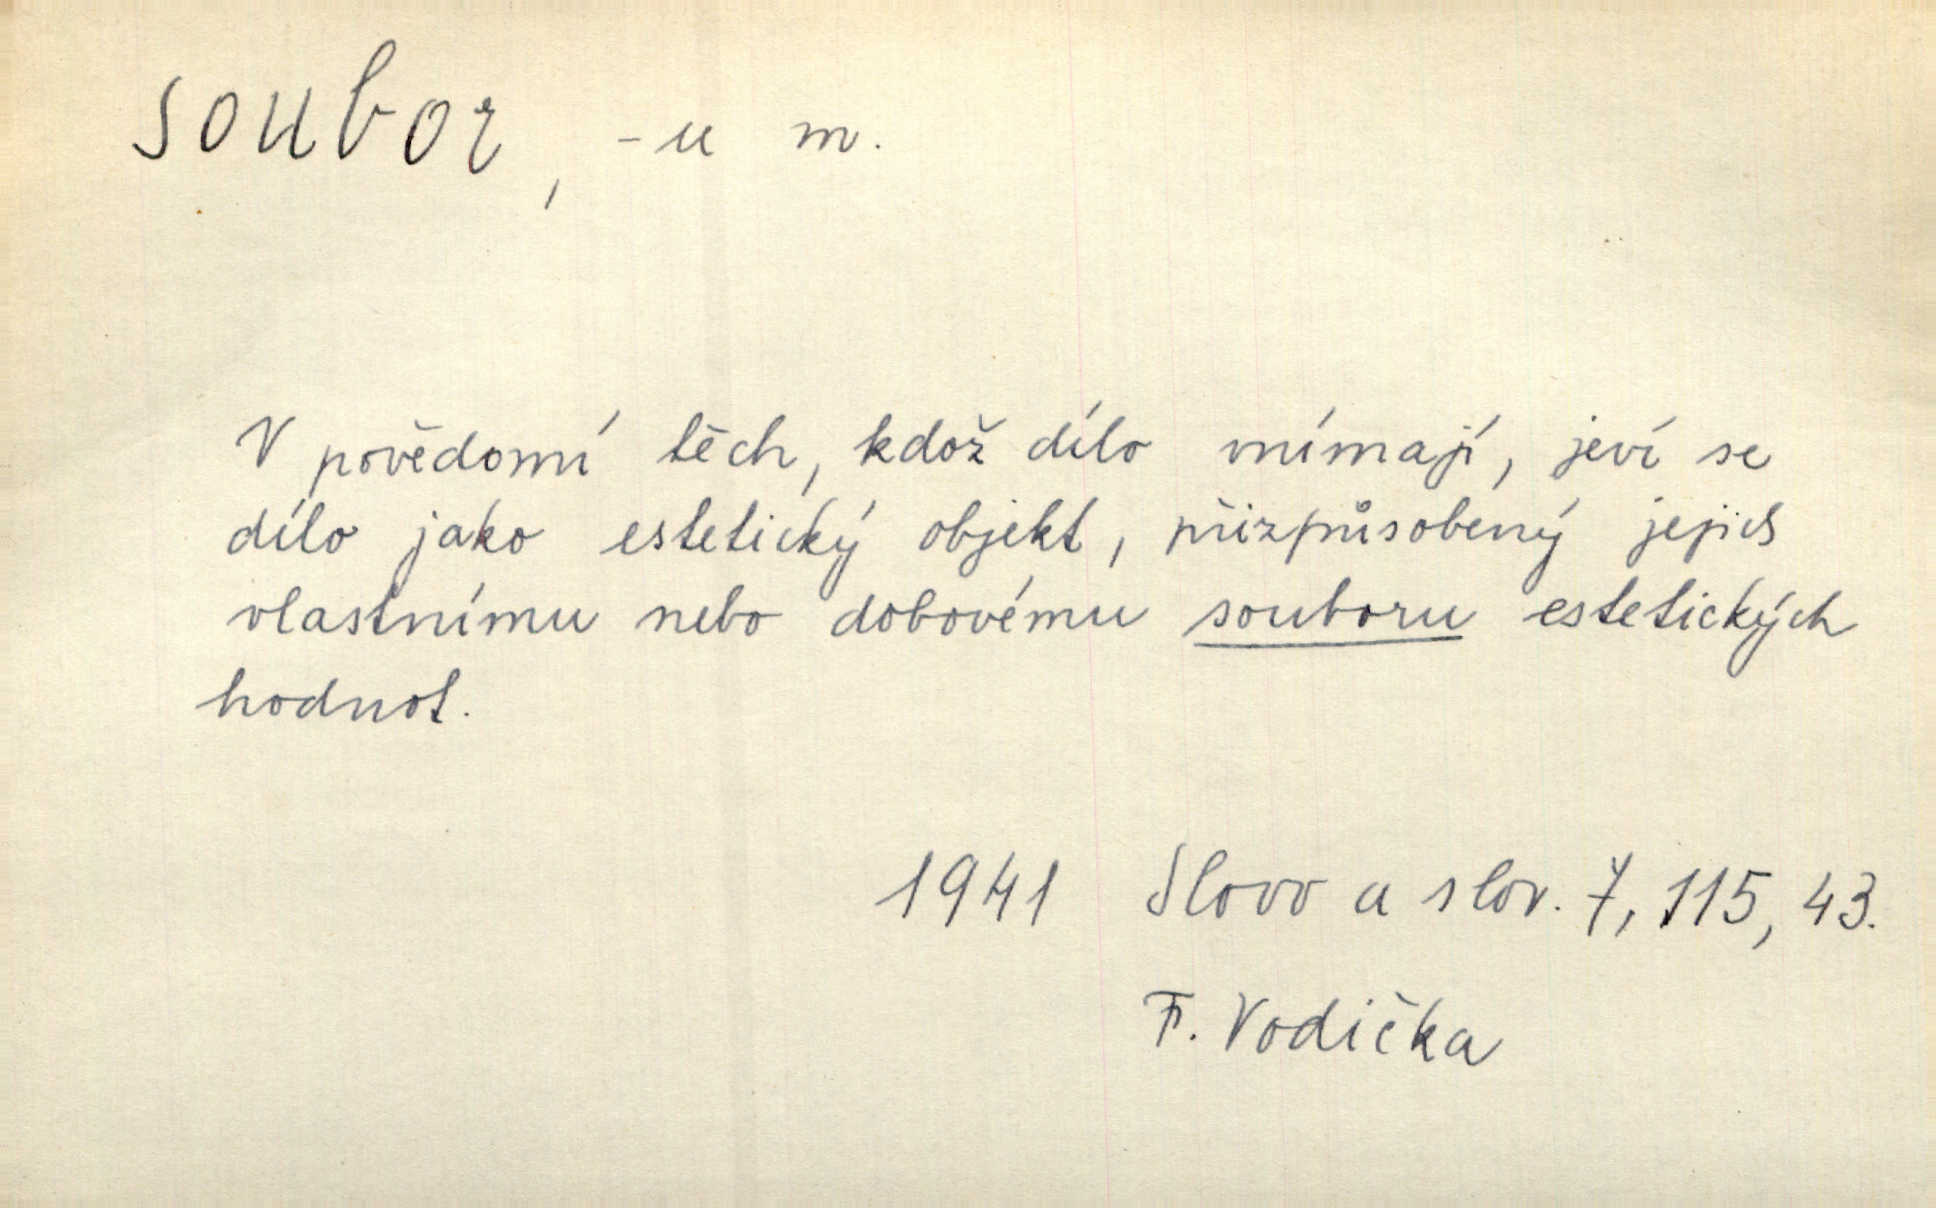 soubor, -u m.
V povědomí těch, kdož dílo vnímají, jeví se
dílo jako estetický objekt, přizpůsobený jejich
vlastnímu nebo dobovému souboru estetických
hodnot.
1941 Slovo a slov. 7, 115, 43.
F. Vodička